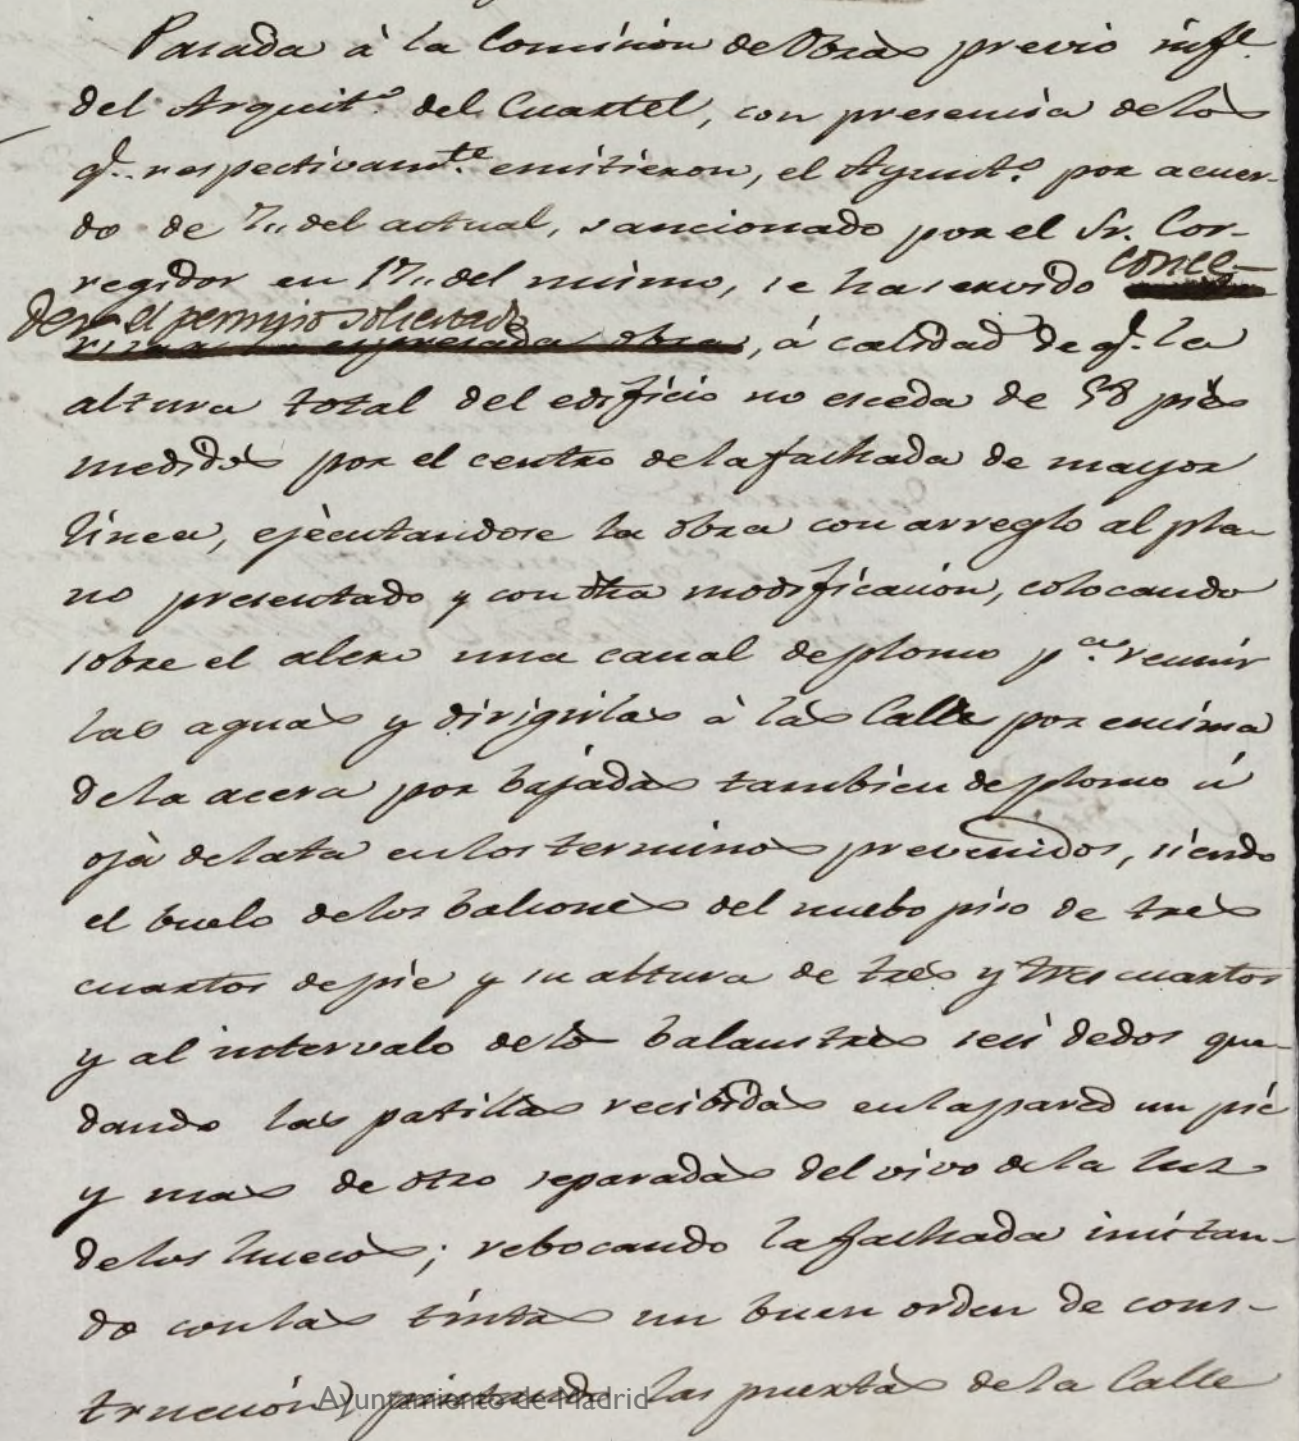 Pasada à la Comision de Obras previo infe.
del Arquito. del Cuartel, con presencia de los
q.e respectivamte. emitieron, el Ayunto. por acuer-
do de 7,, del actual, sancionado por el Sr. Cor-
regidor en 17,, del mismo, se ha servido conce-
der el permiso solicitado
espresada obra, á calidad de q.e la
altura total del edificio no esceda de 58 piès
medidos por el centro de la fachada de mayor
linea, ejècutandose la obra con arreglo al pla-
no presentado y con dha modificacion, colocando
sobre el alero una canal de plomo pa. reunir
las aguas y dirigirlas à las Calles por encima
de la acera por bajadas tambien de plomo ú
oja de lata en los terminos prevenidos, siendo
el buelo de los balcones del nuebo piso de tres
cuartos de pie y su altura de tres y tres cuartos
y al intervalo de los balaustres seis dedos que-
dando las patillas recibidas en la pared un pié
y mas de otro separadas del vivo de la luz
de los huecos; rebocando la fachada imitan-
do con las tintas un buen orden de cons-
trucción, pintando las puertas de la Calle
Ayuntamiento de Madrid